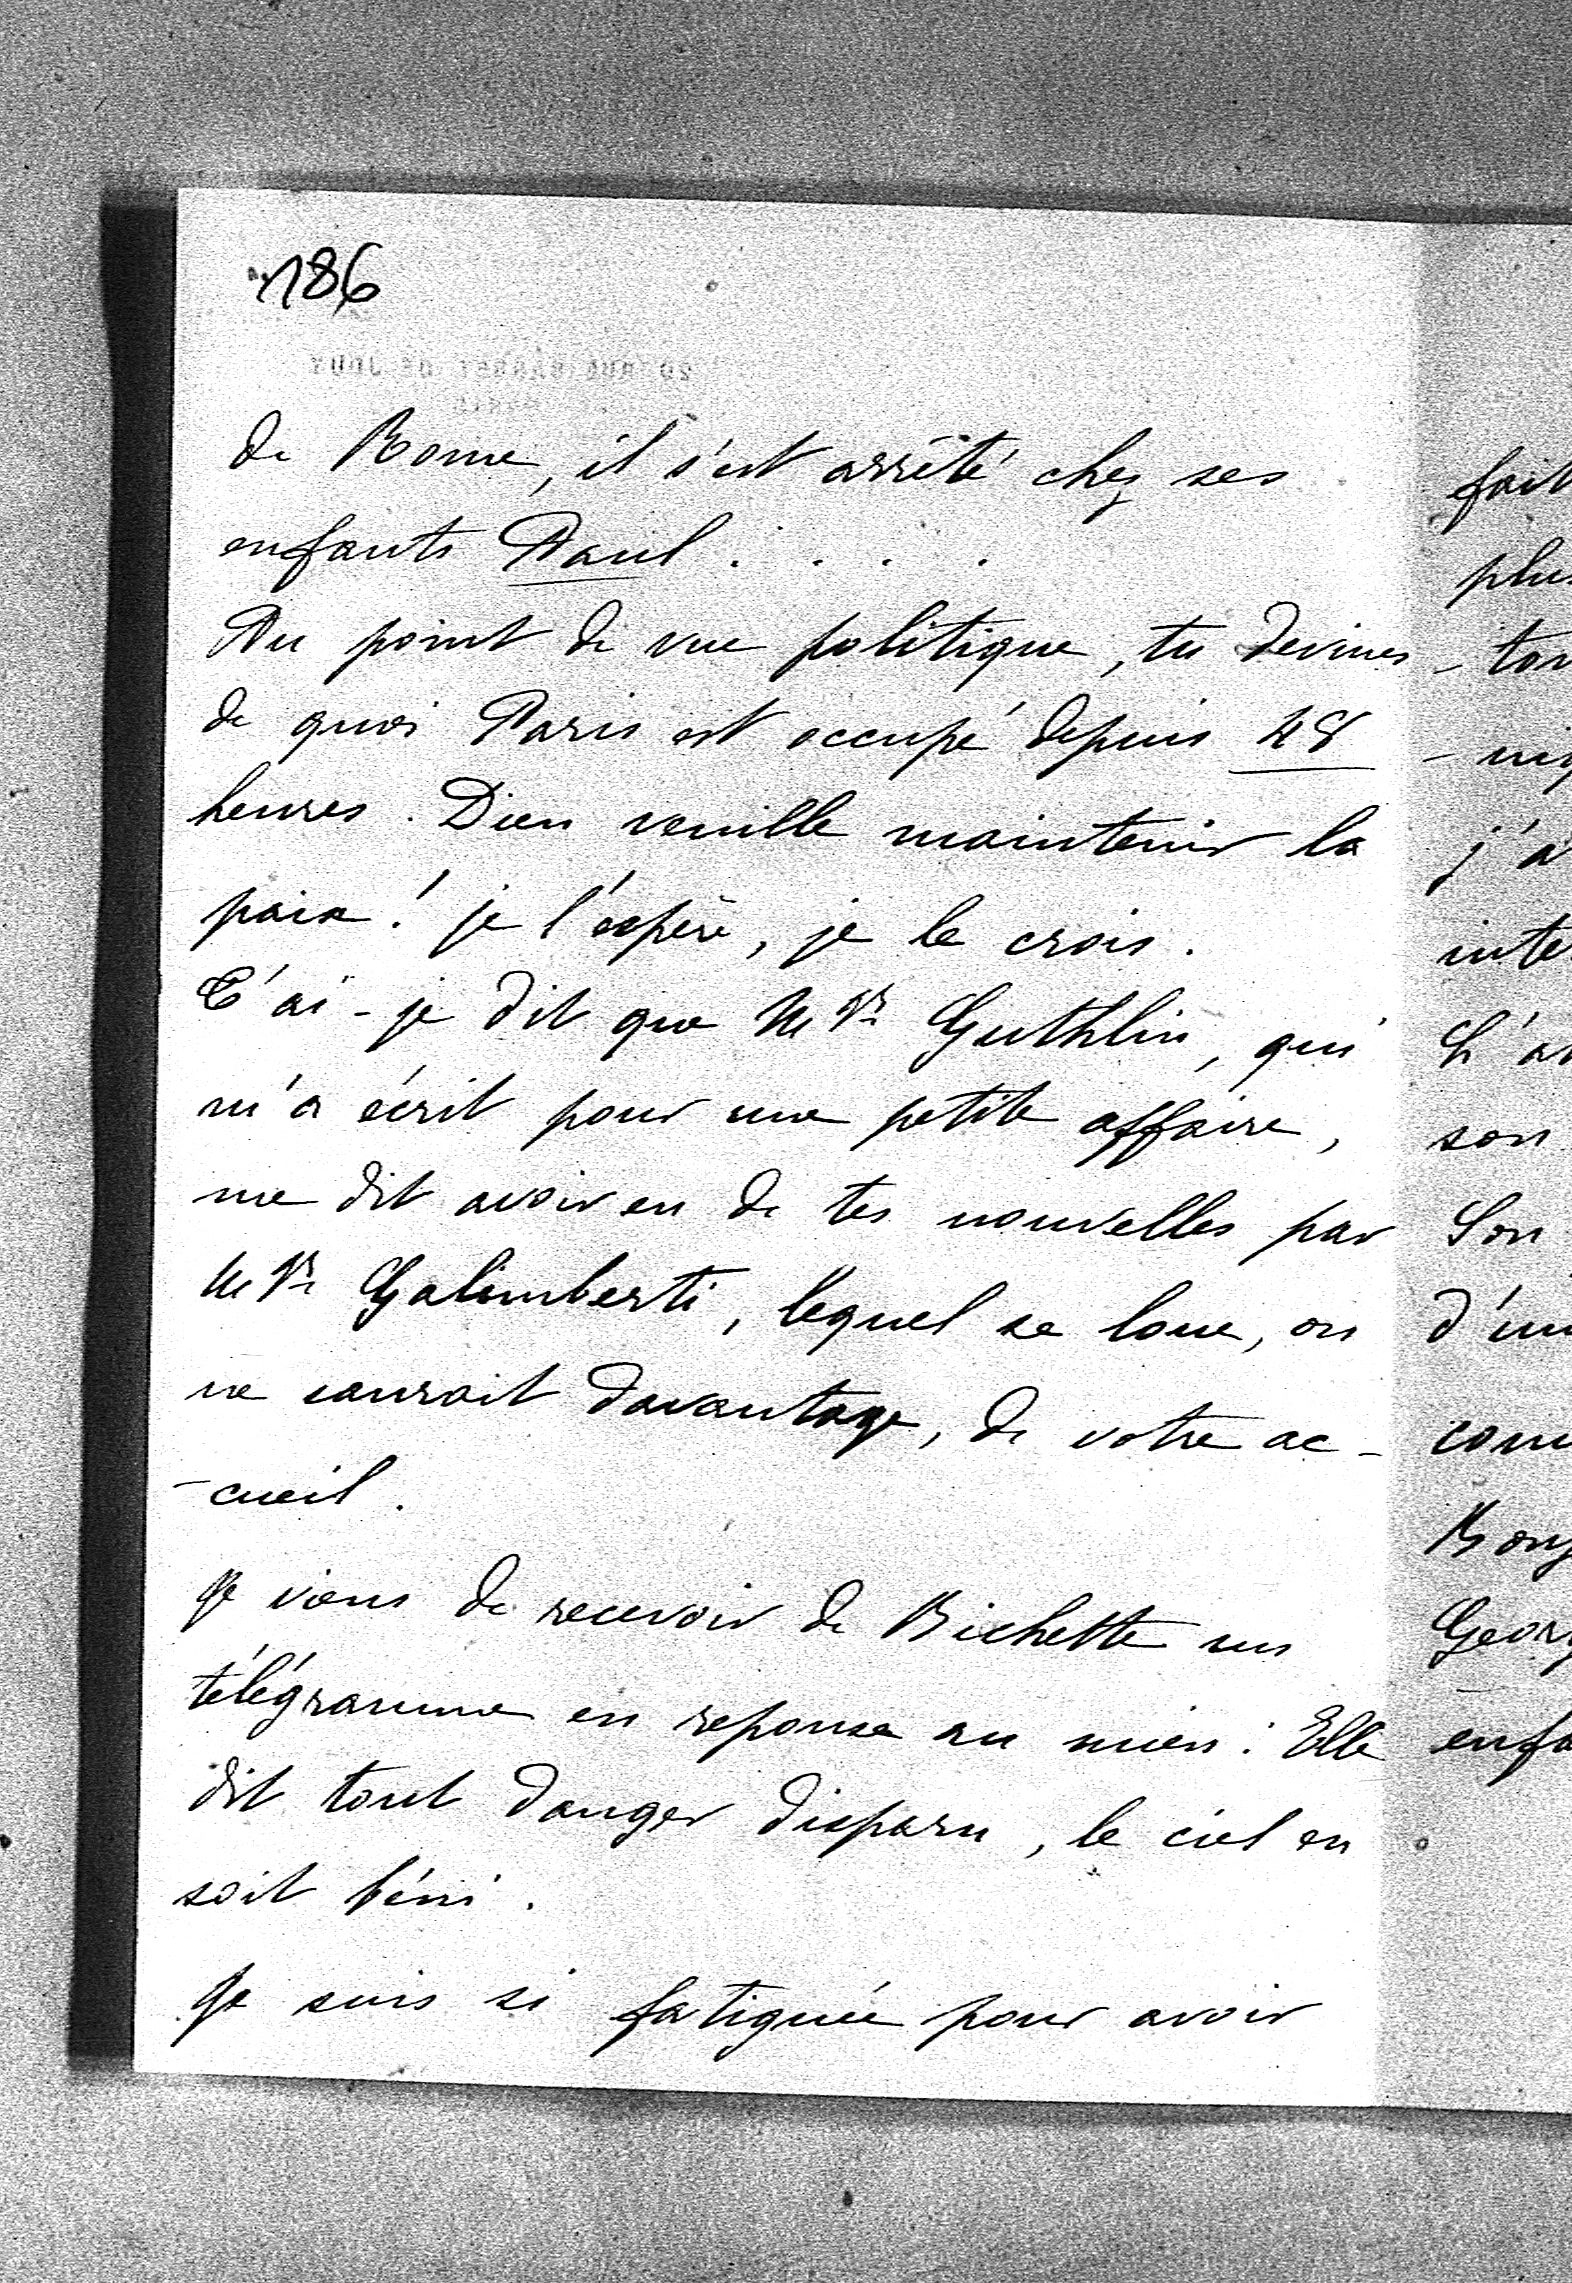 186
20 RUE BARBET DE JOUY
PARIS
de Rome, il s'est arrêté chez ses
enfants Paul . . . .
Au point de vue politique, tu devines
de quoi Paris est occupé depuis 48
heures. Dieu veuille maintenir la
paix! je l'espère, je le crois.
T'ai-je dit que Mgr Guthlin, qui
m'a écrit pour une petite affaire,
me dit avoir eu de tes nouvelles par
Mgr Galimberti, lequel se loue, on
ne saurait davantage, de votre ac-
-cueil.
Je viens de recevoir de Bichette un
télégramme en reponse au mien: Elle
dit tout danger disparu, le ciel en
soit béni.
Je suis si fatiguée pour avoir
fait
plus
j'a
inte
L'a
son
Son
d'un
com
Geor
enfa